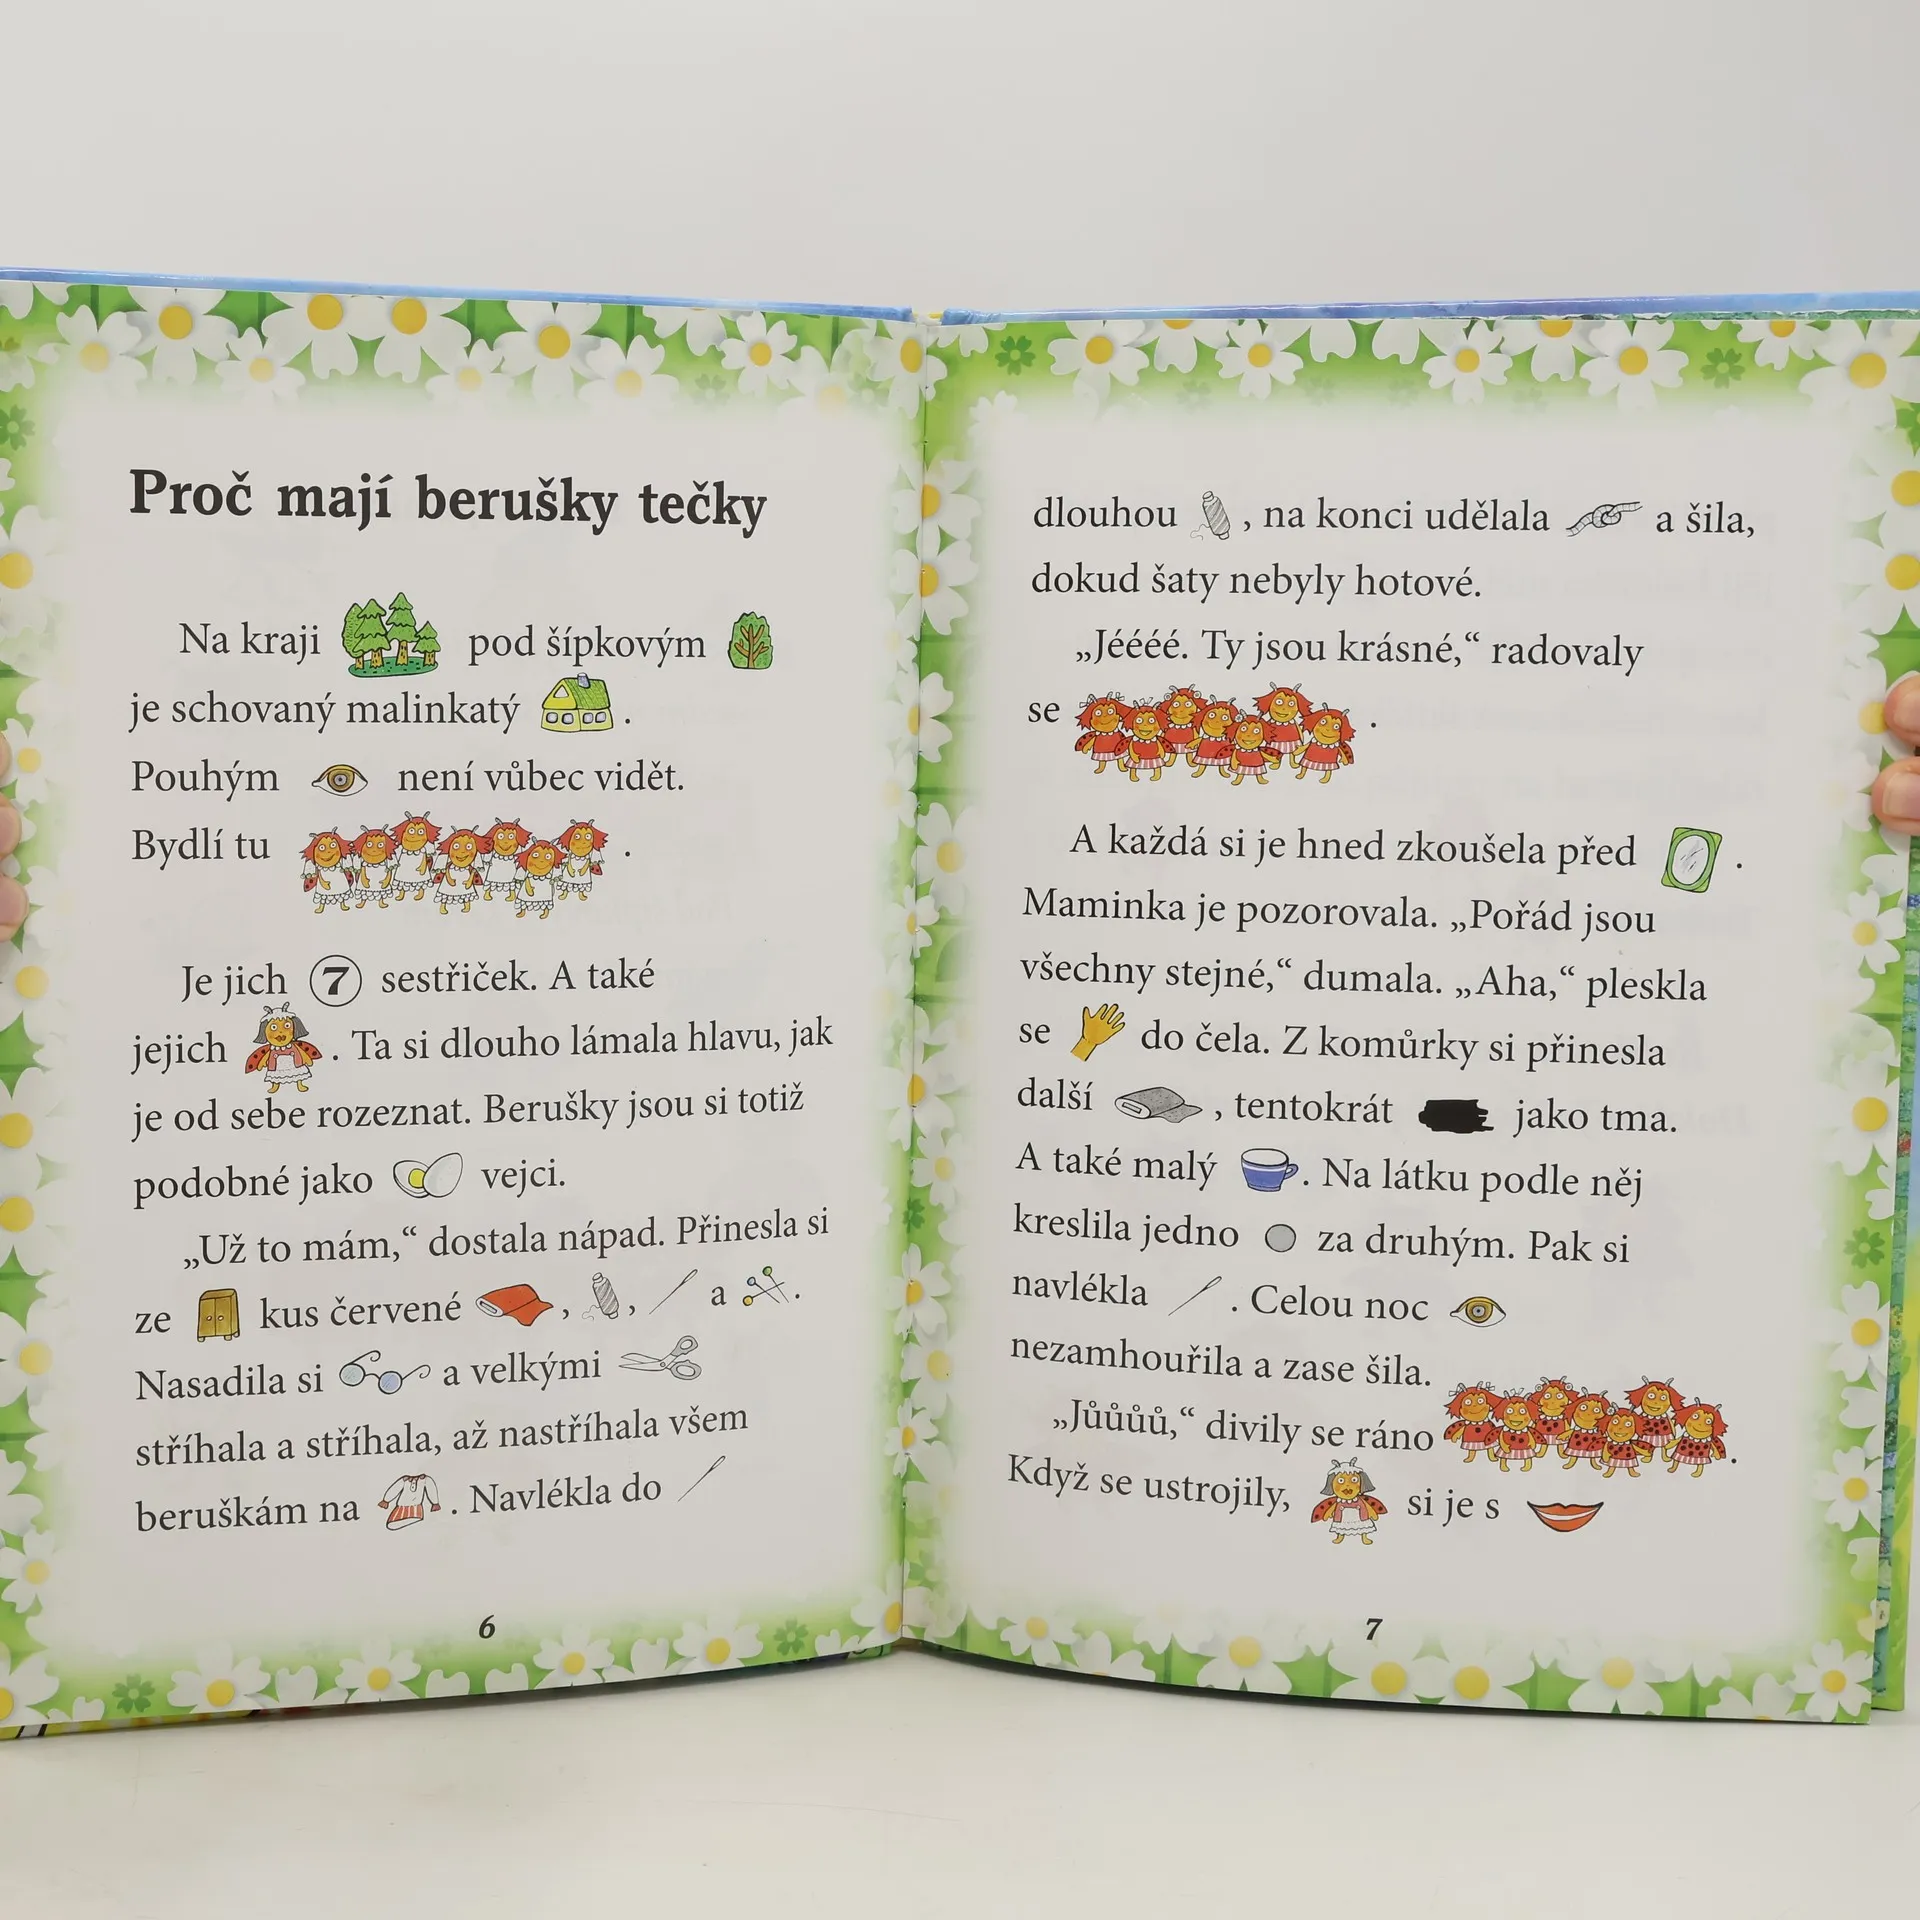 Proč mají berušky tečky
Na kraji pod šípkovým
je schovaný malinkatý .
Pouhým není vůbec vidět.
Bydlí tu .
Je jich 7 sestřiček. A také
jejich . Ta si dlouho lámala hlavu, jak
je od sebe rozeznat. Berušky jsou si totiž
podobné jako vejci.
„Už to mám,“ dostala nápad. Přinesla si
ze kus červené , , a .
Nasadila si a velkými
stříhala a stříhala, až nastříhala všem
beruškám na . Navlékla do
6
dlouhou , na konci udělala a šila,
dokud šaty nebyly hotové.
„Jéééé. Ty jsou krásné,“ radovaly
se .
A každá si je hned zkoušela před .
Maminka je pozorovala. „Pořád jsou
všechny stejné,“ dumala. „Aha,“ pleskla
se do čela. Z komůrky si přinesla
další , tentokrát jako tma.
A také malý . Na látku podle něj
kreslila jedno za druhým. Pak si
navlékla . Celou noc
nezamhouřila a zase šila.
„Jůůůů,“ divily se ráno .
Když se ustrojily, si je s
7